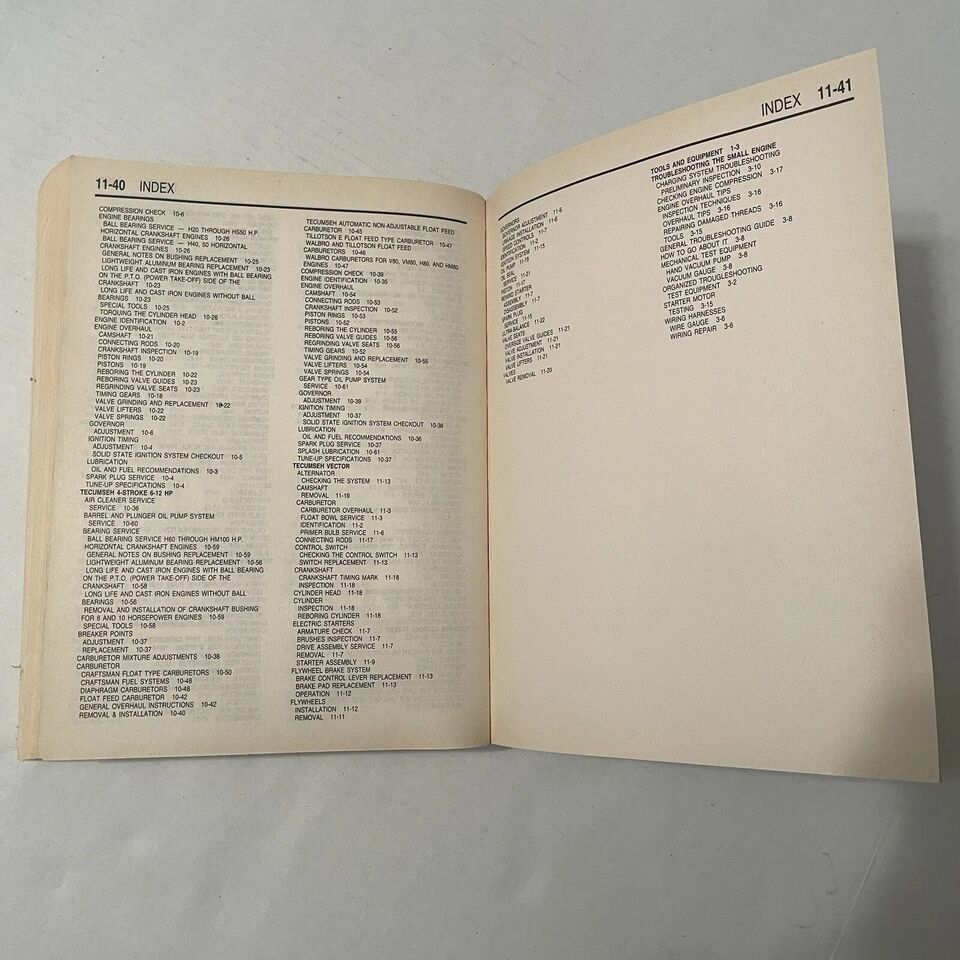 11-40 INDEX
COMPRESSION CHECK 10-6
ENGINE BEARINGS
BALL BEARING SERVICE — H20 THROUGH HS50 H.P.
HORIZONTAL CRANKSHAFT ENGINES 10-26
BALL BEARING SERVICE — H40, 50 HORIZONTAL
CRANKSHAFT ENGINES 10-26
GENERAL NOTES ON BUSHING REPLACEMENT 10-25
LIGHTWEIGHT ALUMINUM BEARING REPLACEMENT 10-23
LONG LIFE AND CAST IRON ENGINES WITH BALL BEARING
ON THE P.T.O. (POWER TAKE-OFF) SIDE OF THE
CRANKSHAFT 10-23
LONG LIFE AND CAST IRON ENGINES WITHOUT BALL
BEARINGS 10-23
SPECIAL TOOLS 10-25
TORQUING THE CYLINDER HEAD 10-26
ENGINE IDENTIFICATION 10-2
ENGINE OVERHAUL
CAMSHAFT 10-21
CONNECTING RODS 10-20
CRANKSHAFT INSPECTION 10-19
PISTON RINGS 10-20
PISTONS 10-19
REBORING THE CYLINDER 10-22
REBORING VALVE GUIDES 10-23
REGRINDING VALVE SEATS 10-23
TIMING GEARS 10-18
VALVE GRINDING AND REPLACEMENT 10-22
VALVE LIFTERS 10-22
VALVE SPRINGS 10-22
GOVERNOR
ADJUSTMENT 10-6
IGNITION TIMING
ADJUSTMENT 10-4
SOLID STATE IGNITION SYSTEM CHECKOUT 10-5
LUBRICATION
OIL AND FUEL RECOMMENDATIONS 10-3
SPARK PLUG SERVICE 10-4
TUNE-UP SPECIFICATIONS 10-4
TECUMSEH 4-STROKE 6-12 HP
AIR CLEANER SERVICE
SERVICE 10-36
BARREL AND PLUNGER OIL PUMP SYSTEM
SERVICE 10-60
BEARING SERVICE
BALL BEARING SERVICE H60 THROUGH HM100 H.P.
HORIZONTAL CRANKSHAFT ENGINES 10-59
GENERAL NOTES ON BUSHING REPLACEMENT 10-59
LIGHTWEIGHT ALUMINUM BEARING REPLACEMENT 10-56
LONG LIFE AND CAST IRON ENGINES WITH BALL BEARING
ON THE P.T.O. (POWER TAKE-OFF) SIDE OF THE
CRANKSHAFT 10-58
LONG LIFE AND CAST IRON ENGINES WITHOUT BALL
BEARINGS 10-56
REMOVAL AND INSTALLATION OF CRANKSHAFT BUSHING
FOR 8 AND 10 HORSEPOWER ENGINES 10-59
SPECIAL TOOLS 10-58
BREAKER POINTS
ADJUSTMENT 10-37
REPLACEMENT 10-37
CARBURETOR MIXTURE ADJUSTMENTS 10-38
CARBURETOR
CRAFTSMAN FLOAT TYPE CARBURETORS 10-50
CRAFTSMAN FUEL SYSTEMS 10-48
DIAPHRAGM CARBURETORS 10-48
FLOAT FEED CARBURETOR 10-42
GENERAL OVERHAUL INSTRUCTIONS 10-42
REMOVAL & INSTALLATION 10-40
TECUMSEH AUTOMATIC NON-ADJUSTABLE FLOAT FEED
CARBURETOR 10-45
TILLOTSON E FLOAT FEED TYPE CARBURETOR 10-47
WALBRO AND TILLOTSON FLOAT FEED
CARBURETORS 10-46
WALBRO CARBURETORS FOR V80, VM80, H80, AND HM80
ENGINES 10-47
COMPRESSION CHECK 10-39
ENGINE IDENTIFICATION 10-35
ENGINE OVERHAUL
CAMSHAFT 10-54
CONNECTING RODS 10-53
CRANKSHAFT INSPECTION 10-52
PISTON RINGS 10-53
PISTONS 10-52
REBORING THE CYLINDER 10-55
REBORING VALVE GUIDES 10-56
REGRINDING VALVE SEATS 10-56
TIMING GEARS 10-52
VALVE GRINDING AND REPLACEMENT 10-55
VALVE LIFTERS 10-54
VALVE SPRINGS 10-54
GEAR TYPE OIL PUMP SYSTEM
SERVICE 10-61
GOVERNOR
ADJUSTMENT 10-39
IGNITION TIMING
ADJUSTMENT 10-37
SOLID STATE IGNITION SYSTEM CHECKOUT 10-38
LUBRICATION
OIL AND FUEL RECOMMENDATIONS 10-36
SPARK PLUG SERVICE 10-37
SPLASH LUBRICATION 10-61
TUNE-UP SPECIFICATIONS 10-37
TECUMSEH VECTOR
ALTERNATOR
CHECKING THE SYSTEM 11-13
CAMSHAFT
REMOVAL 11-19
CARBURETOR
CARBURETOR OVERHAUL 11-3
FLOAT BOWL SERVICE 11-3
IDENTIFICATION 11-2
PRIMER BULB SERVICE 11-6
CONNECTING RODS 11-17
CONTROL SWITCH
CHECKING THE CONTROL SWITCH 11-13
SWITCH REPLACEMENT 11-13
CRANKSHAFT
CRANKSHAFT TIMING MARK 11-18
INSPECTION 11-18
CYLINDER HEAD 11-18
CYLINDER
INSPECTION 11-18
REBORING CYLINDER 11-18
ELECTRIC STARTERS
ARMATURE CHECK 11-7
BRUSHES INSPECTION 11-7
DRIVE ASSEMBLY SERVICE 11-7
REMOVAL 11-7
STARTER ASSEMBLY 11-9
FLYWHEEL BRAKE SYSTEM
BRAKE CONTROL LEVER REPLACEMENT 11-13
BRAKE PAD REPLACEMENT 11-13
OPERATION 11-12
FLYWHEELS
INSTALLATION 11-12
REMOVAL 11-11
INDEX 11-41
GOVERNORS
GOVERNOR ADJUSTMENT 11-6
LINKAGE INSTALLATION 11-6
SPEED CONTROLS 11-7
IDENTIFICATION 11-2
IGNITION SYSTEM 11-15
OIL PUMP 11-19
OIL SEAL
SERVICE 11-21
PISTON 11-17
REWIND STARTER
ASSEMBLY 11-7
DISASSEMBLY 11-7
SPARK PLUG
SERVICE 11-15
ULTRA-BALANCE 11-22
VALVE SEATS
OVERSIZE VALVE GUIDES 11-21
VALVE ADJUSTMENT 11-21
VALVE INSTALLATION 11-21
VALVE LIFTERS 11-21
VALVES
VALVE REMOVAL 11-20
TOOLS AND EQUIPMENT 1-3
TROUBLESHOOTING THE SMALL ENGINE
CHARGING SYSTEM TROUBLESHOOTING
PRELIMINARY INSPECTION 3-10
CHECKING ENGINE COMPRESSION 3-17
ENGINE OVERHAUL TIPS
INSPECTION TECHNIQUES 3-16
OVERHAUL TIPS 3-16
REPAIRING DAMAGED THREADS 3-16
TOOLS 3-15
GENERAL TROUBLESHOOTING GUIDE 3-8
HOW TO GO ABOUT IT 3-8
MECHANICAL TEST EQUIPMENT
HAND VACUUM PUMP 3-8
VACUUM GAUGE 3-8
ORGANIZED TROUGLESHOOTING
TEST EQUIPMENT 3-2
STARTER MOTOR
TESTING 3-15
WIRING HARNESSES
WIRE GAUGE 3-6
WIRING REPAIR 3-6